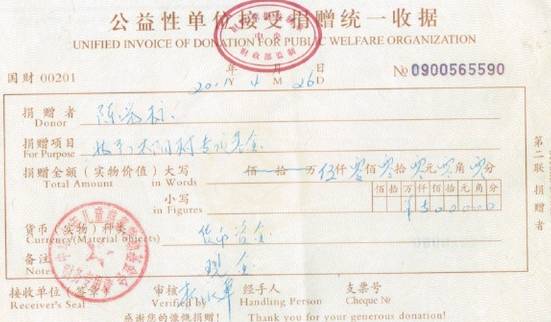 公益性单位接受捐赠统一收据
UNIFIED INVOICE OF DONATION FOR PUBLIC WELFARE ORGANIZATION
国财 00201
年 月 日
2011 Y 4 M 26 D
№ 0900565590
捐赠者
Donor
陈
捐赠项目
For Purpose
专项基金
捐赠金额（实物价值）大写
佰 拾 万 伍 仟 零 佰 零 拾 零 元 零 角 零 分
Total Amount in Words
小写
佰 拾 万 仟 佰 拾 元 角 分
in Figures
¥500000
货币（实物）种类
Currency(Material objects)
货币资金
备注
Note
现金
接收单位（签章）
Receiver's Seal
审核
Verified by
经手人
Handling Person
支票号
Cheque №
感谢您的慷慨捐赠！ Thank you for your generous donation!
第二联 捐赠者